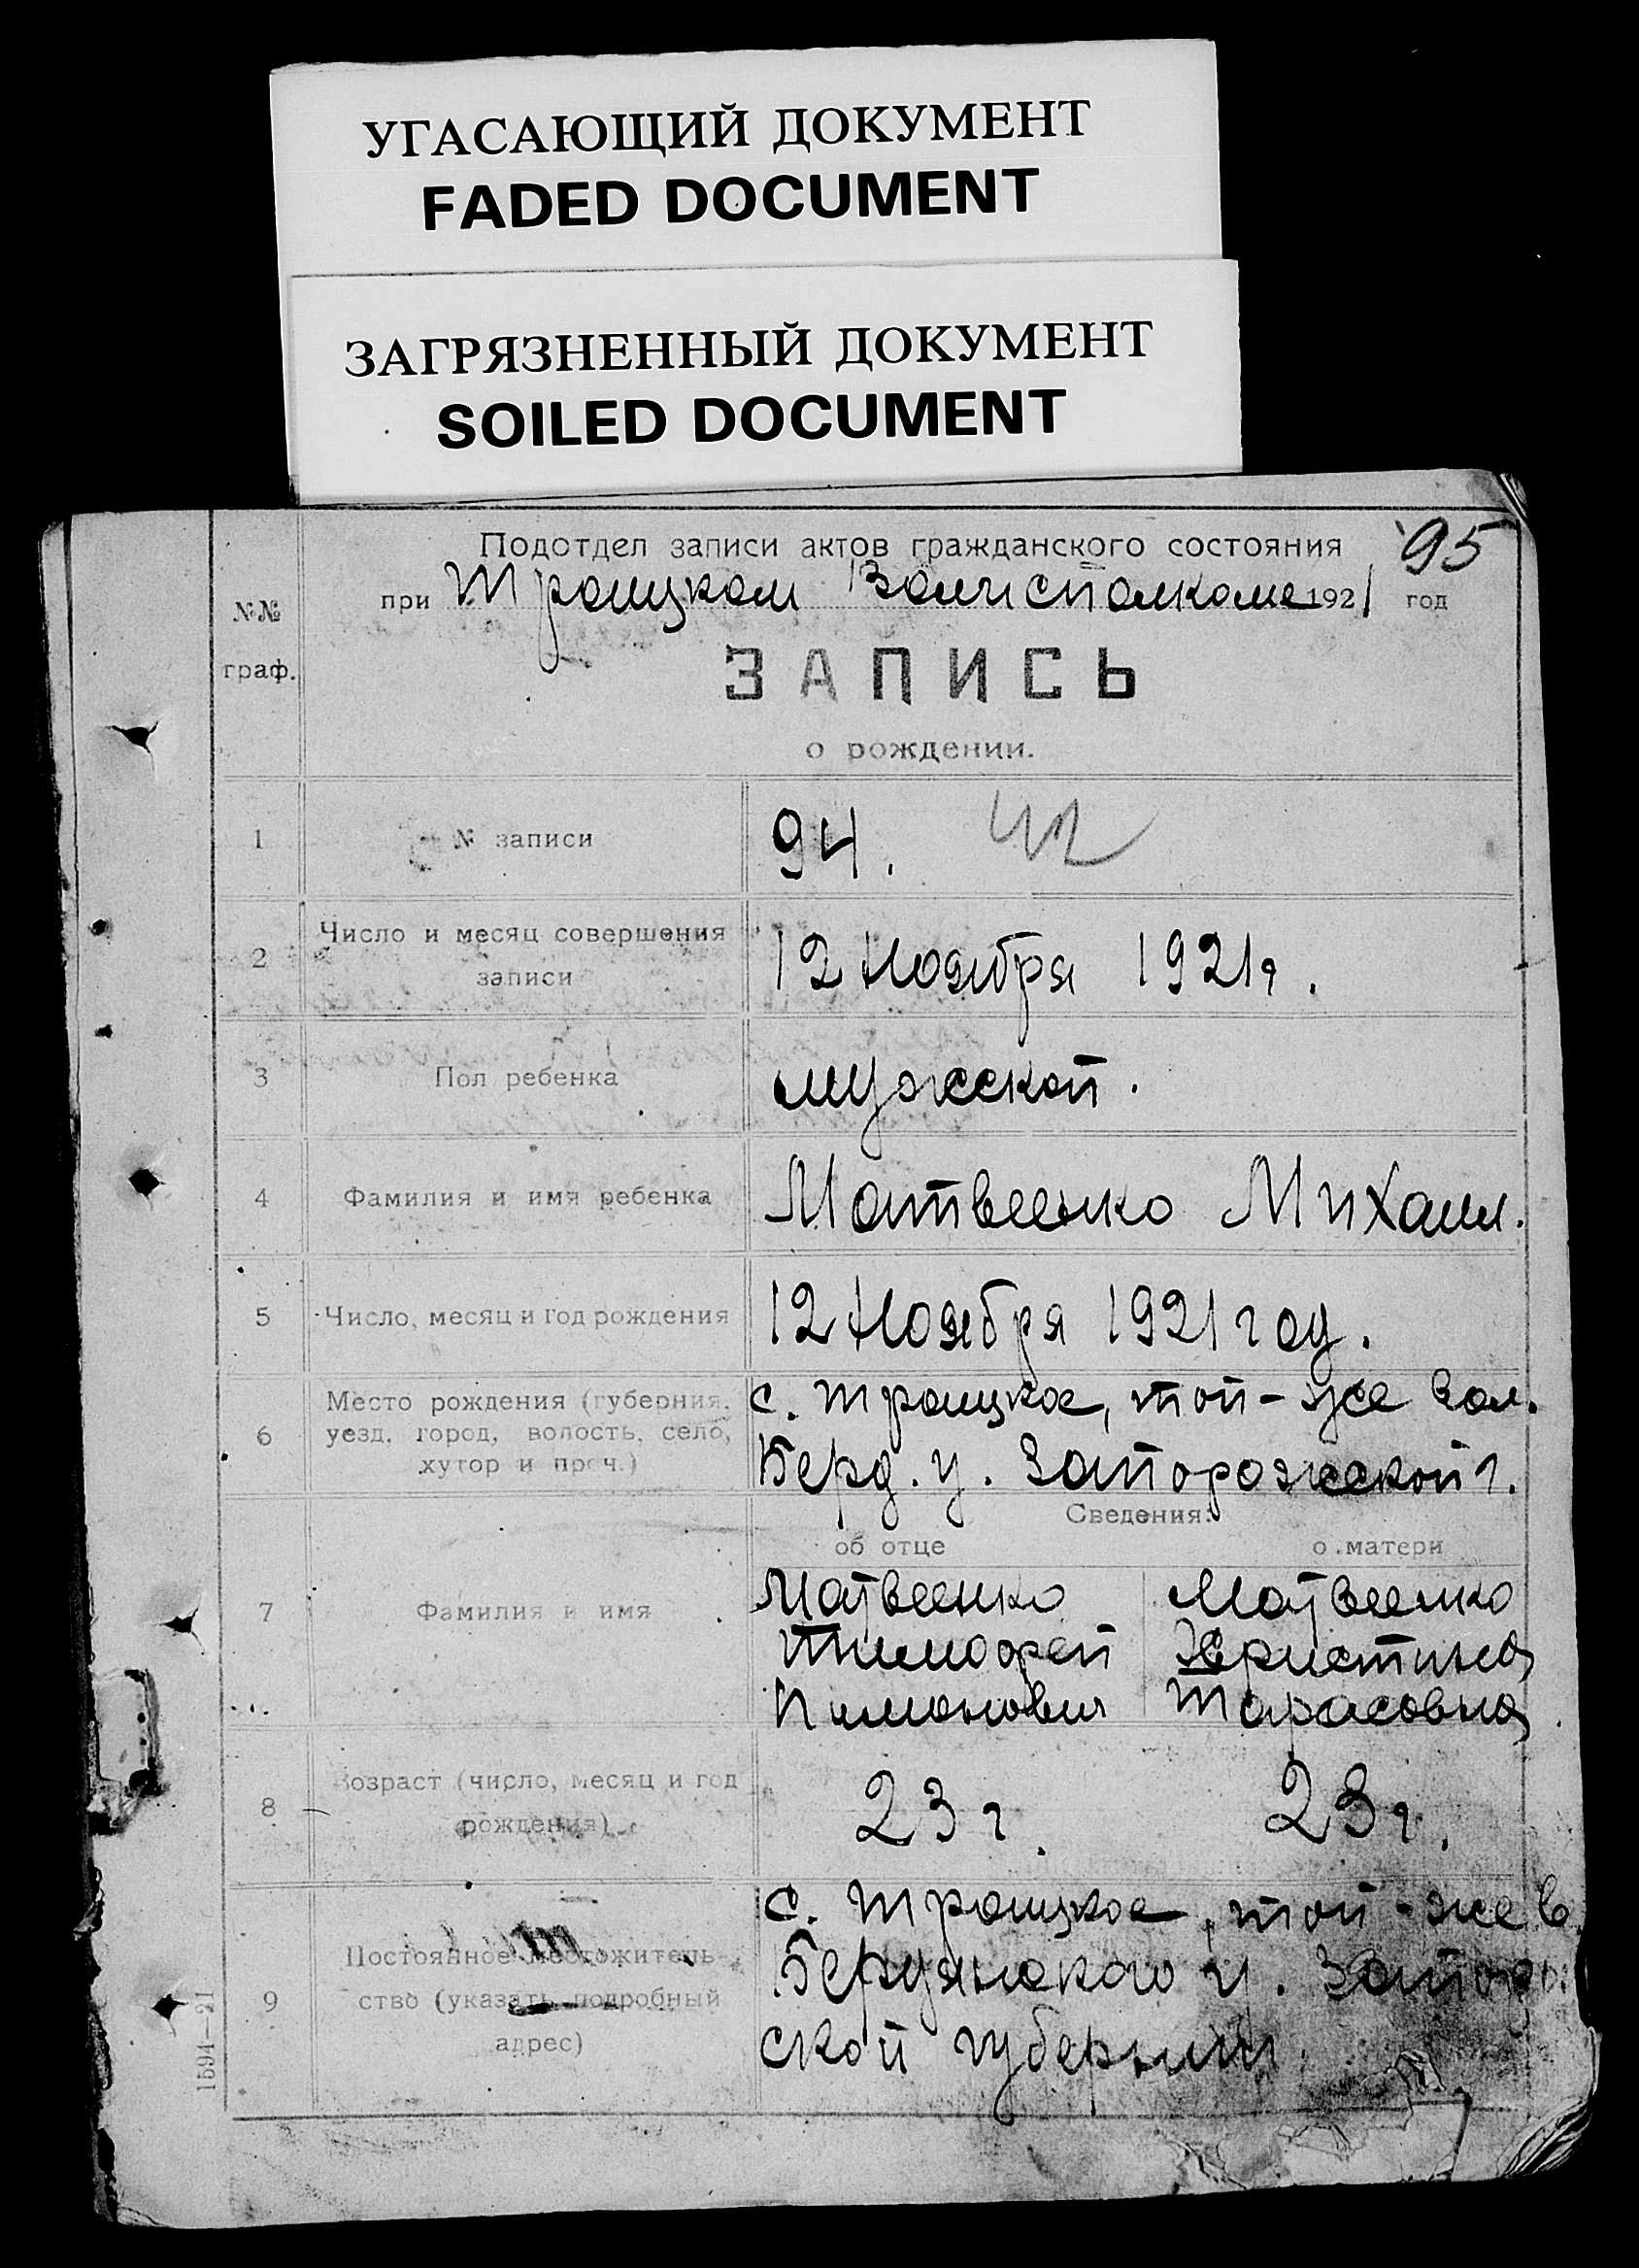 УГАСАЮЩИЙ ДОКУМЕНТ
FADED DOCUMENT
ЗАГРЯЗНЕННЫЙ ДОКУМЕНТ
SOILED DOCUMENT
95
Подотдел записи актов гражданского состояния
при Троицком Волисполкоме 1921 год
№№
граф.
ЗАПИСЬ
о рождении.
1 № записи 94.
2 Число и месяц совершения
записи 12 Ноября 1921 г.
3 Пол ребенка мужской.
4 Фамилия и имя ребенка Матвеенко Михаил.
5 Число, месяц и год рождения 12 Ноября 1921 год.
6 Место рождения (губерния, с. Троицкое, той-же вол.
уезд, город, волость, село,
хутор и проч.) Берд. у. Запорожской г.
Сведения:
об отце о матери
7 Фамилия и имя Матвеенко Матвеенко
Тимофей Христина
Пимонович Тарасовна
8 Возраст (число, месяц и год
рождения) 23 г. 23 г.
9 Постоянное местожитель- с. Троицкое, той-же в
ство (указать подробный Бердянского у. Запоро
адрес) ской губернии.
1594—21